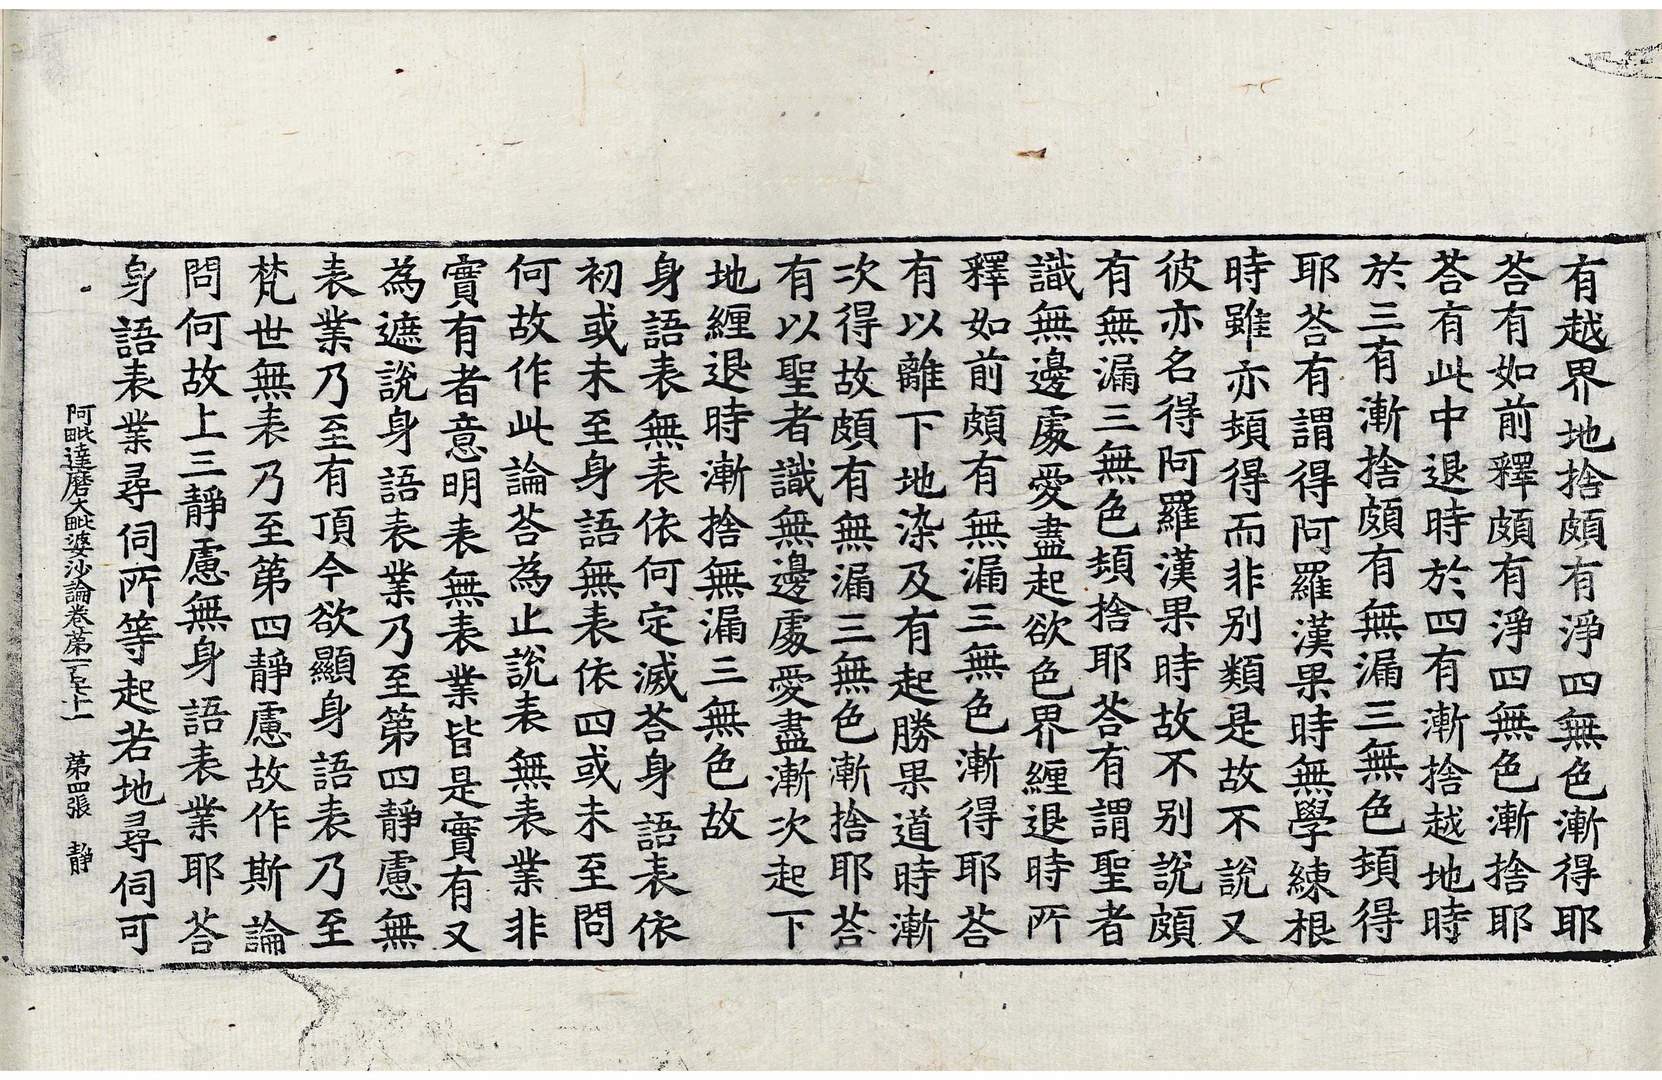 有越界地捨頗有淨四無色漸得耶
荅有如前釋頗有淨四無色漸捨耶
荅有此中退時於四有漸捨越地時
於三有漸捨頗有無漏三無色頓得
耶荅有謂得阿羅漢果時無學練根
時雖亦頓得而非別類是故不說又
彼亦名得阿羅漢果時故不別說頗
有無漏三無色頓捨耶荅有謂聖者
識無邊處愛盡起欲色界纏退時所
釋如前頗有無漏三無色漸得耶荅
有以離下地染及有起勝果道時漸
次得故頗有無漏三無色漸捨耶荅
有以聖者識無邊處愛盡漸次起下
地纏退時漸捨無漏三無色故
身語表無表依何定滅荅身語表依
初或未至身語無表依四或未至問
何故作此論荅為止說表無表業非
實有者意明表無表業皆是實有又
為遮說身語表業乃至第四靜慮無
表業乃至有頂今欲顯身語表乃至
梵世無表乃至第四靜慮故作斯論
問何故上三靜慮無身語表業耶荅
身語表業尋伺所等起若地尋伺可
阿毗達磨大毗婆沙論卷第一百 第四張 靜